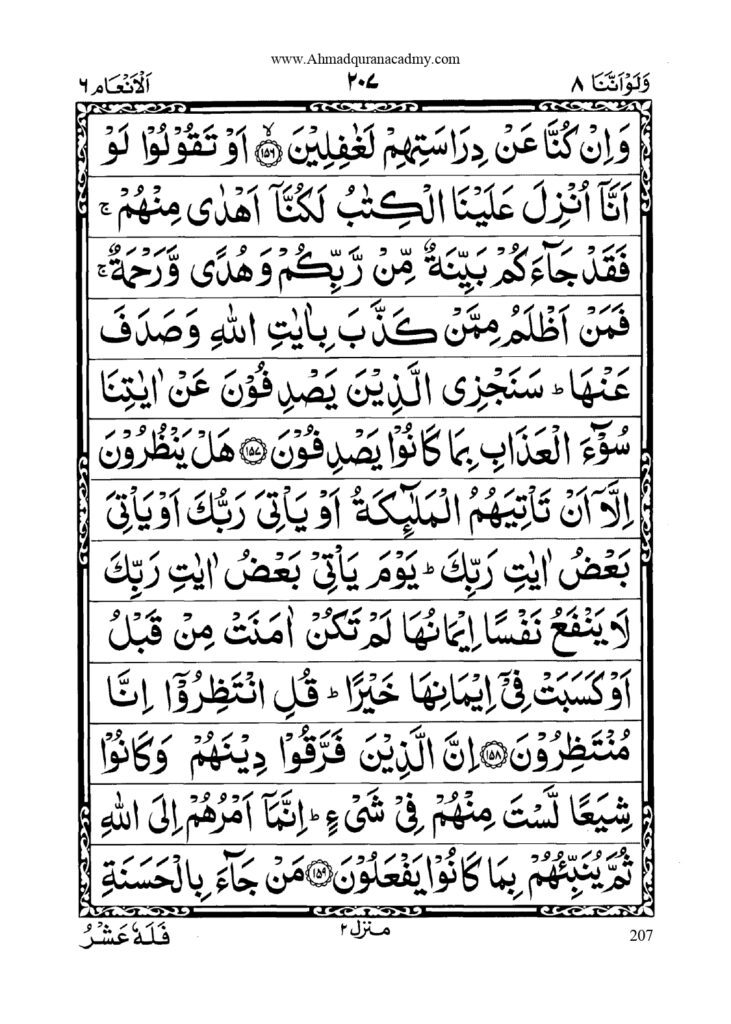 www.Ahmadquranacadmy.com
وَلَوْاَنَّنَا ٨
٢٠٧
اَلْاَنْعَام ٦
وَاِنْ كُنَّا عَنْ دِرَاسَتِهِمْ لَغٰفِلِيْنَ ﴿١٥٦﴾ۙ اَوْ تَقُوْلُوْا لَوْ
اَنَّاۤ اُنْزِلَ عَلَيْنَا الْكِتٰبُ لَكُنَّاۤ اَهْدٰى مِنْهُمْ ۚ
فَقَدْ جَآءَكُمْ بَيِّنَةٌ مِّنْ رَّبِّكُمْ وَهُدًى وَّرَحْمَةٌ ۚ
فَمَنْ اَظْلَمُ مِمَّنْ كَذَّبَ بِاٰيٰتِ اللّٰهِ وَصَدَفَ
عَنْهَا ؕ سَنَجْزِى الَّذِيْنَ يَصْدِفُوْنَ عَنْ اٰيٰتِنَا
سُوْٓءَ الْعَذَابِ بِمَا كَانُوْا يَصْدِفُوْنَ ﴿١٥٧﴾ هَلْ يَنْظُرُوْنَ
اِلَّاۤ اَنْ تَاْتِيَهُمُ الْمَلٰٓئِكَةُ اَوْ يَاْتِىَ رَبُّكَ اَوْ يَاْتِىَ
بَعْضُ اٰيٰتِ رَبِّكَ ؕ يَوْمَ يَاْتِىْ بَعْضُ اٰيٰتِ رَبِّكَ
لَا يَنْفَعُ نَفْسًا اِيْمَانُهَا لَمْ تَكُنْ اٰمَنَتْ مِنْ قَبْلُ
اَوْ كَسَبَتْ فِىْۤ اِيْمَانِهَا خَيْرًا ؕ قُلِ انْتَظِرُوْۤا اِنَّا
مُنْتَظِرُوْنَ ﴿١٥٨﴾ اِنَّ الَّذِيْنَ فَرَّقُوْا دِيْنَهُمْ وَكَانُوْا
شِيَعًا لَّسْتَ مِنْهُمْ فِىْ شَىْءٍ ؕ اِنَّمَاۤ اَمْرُهُمْ اِلَى اللّٰهِ
ثُمَّ يُنَبِّئُهُمْ بِمَا كَانُوْا يَفْعَلُوْنَ ﴿١٥٩﴾ مَنْ جَآءَ بِالْحَسَنَةِ
207
منزل ٢
فَلَهٗ عَشْرُ